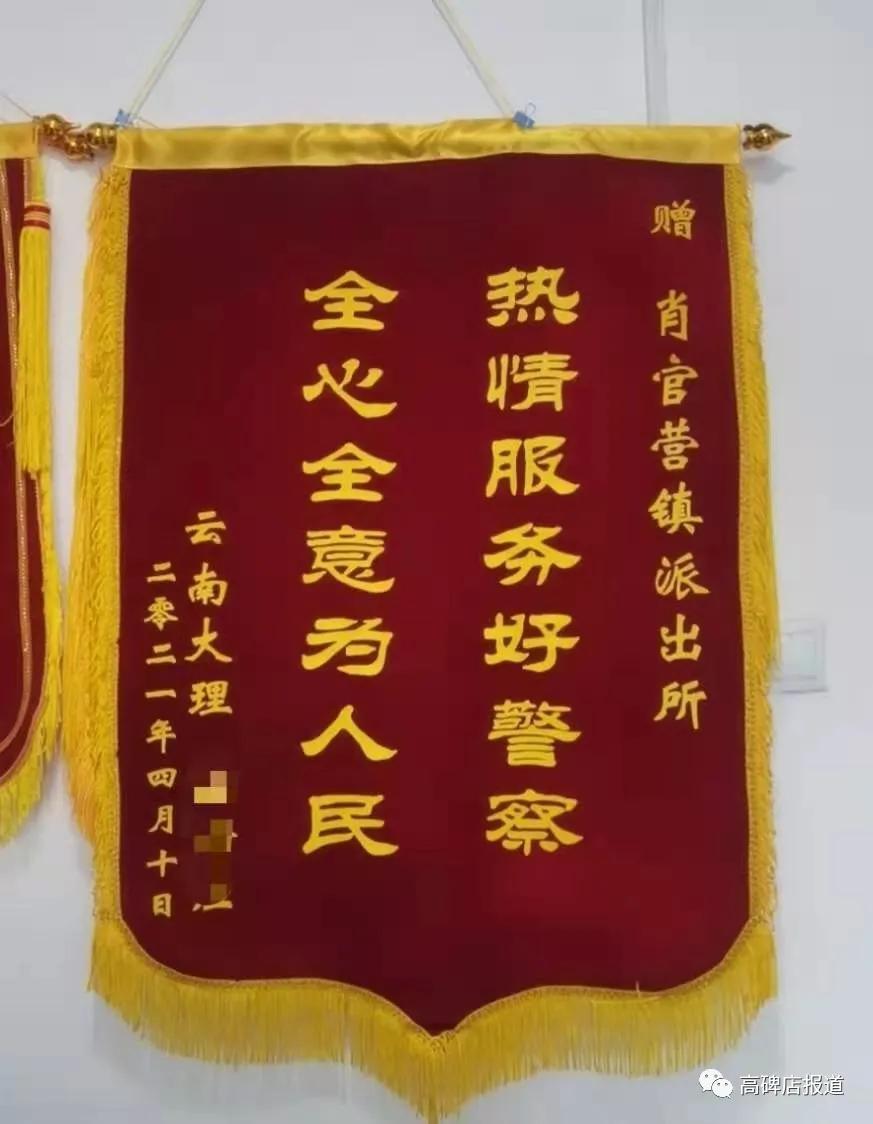 赠 肖官营镇派出所
热情服务好警察
全心全意为人民
云南大理
二零二一年四月十日
高碑店报道